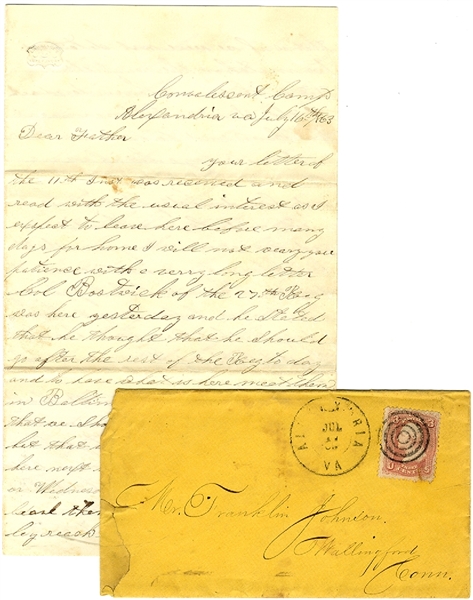 Convelescent Camp
Alexandria va July 16th/63
Dear Father
your letter of
the 11th Inst was received and
read with the usual interest as I
expect to leave here before many
days for home I will not weary your
patience with a verry long letter
Col Bostwick of the 27th Reg
was here yesterday and he Stated
that he thought that he should
go after the rest of the Reg to day
and to have what is here meet them
in
that we
that
here next
or Wednes
ALEXANDRIA
JUL
VA
Mr. Franklin Johnson.
Wallingford
Conn.